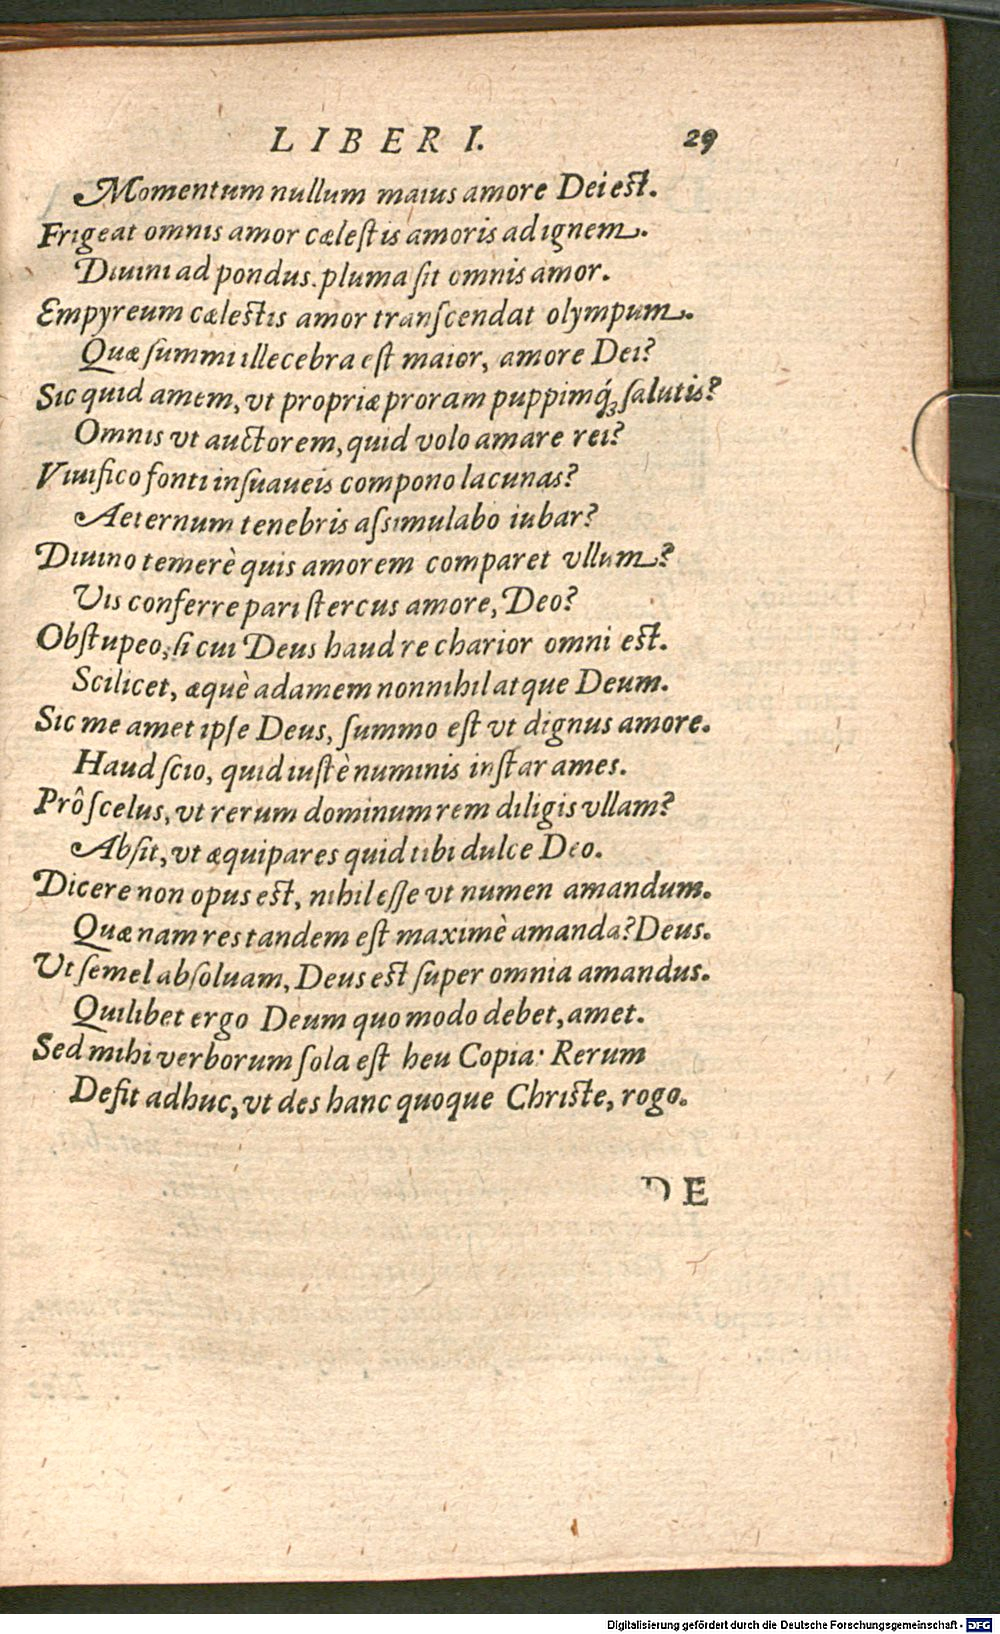 LIBER I. 29
Momentum nullum maius amore Dei est.
Frigeat omnis amor cælestis amoris ad ignem.
Diuini ad pondus. pluma ſit omnis amor.
Empyreum cælestis amor tranſcendat olympum.
Quæ ſummi illecebra eſt maior, amore Dei?
Sic quid amem, vt propriæ proram puppimq́; ſalutis?
Omnis vt auctorem, quid volo amare rei?
Viuifico fonti inſuaueis compono lacunas?
Aeternum tenebris aſsimulabo iubar?
Diuino temerè quis amorem comparet vllum?
Vis conferre pari ſtercus amore, Deo?
Obſtupeo, ſi cui Deus haud re charior omni est.
Scilicet, æquè adamem nonnihil atque Deum.
Sic me amet ipſe Deus, ſummo eſt vt dignus amore.
Haud ſcio, quid iuſtè numinis inſtar ames.
Prô ſcelus, vt rerum dominum rem diligis vllam?
Abſit, vt æquipares quid tibi dulce Deo.
Dicere non opus est, nihil eſſe vt numen amandum.
Quænam res tandem eſt maximè amanda? Deus.
Vt ſemel abſoluam, Deus est ſuper omnia amandus.
Quilibet ergo Deum quo modo debet, amet.
Sed mihi verborum ſola eſt heu Copia: Rerum
Defit adhuc, vt des hanc quoque Christe, rogo.
DE
Digitalisierung gefördert durch die Deutsche Forschungsgemeinschaft - DFG